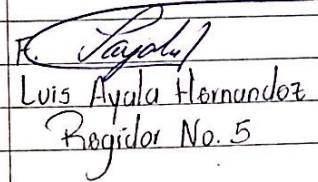 F.
Luis Ayala Hernandez
Regidor No. 5